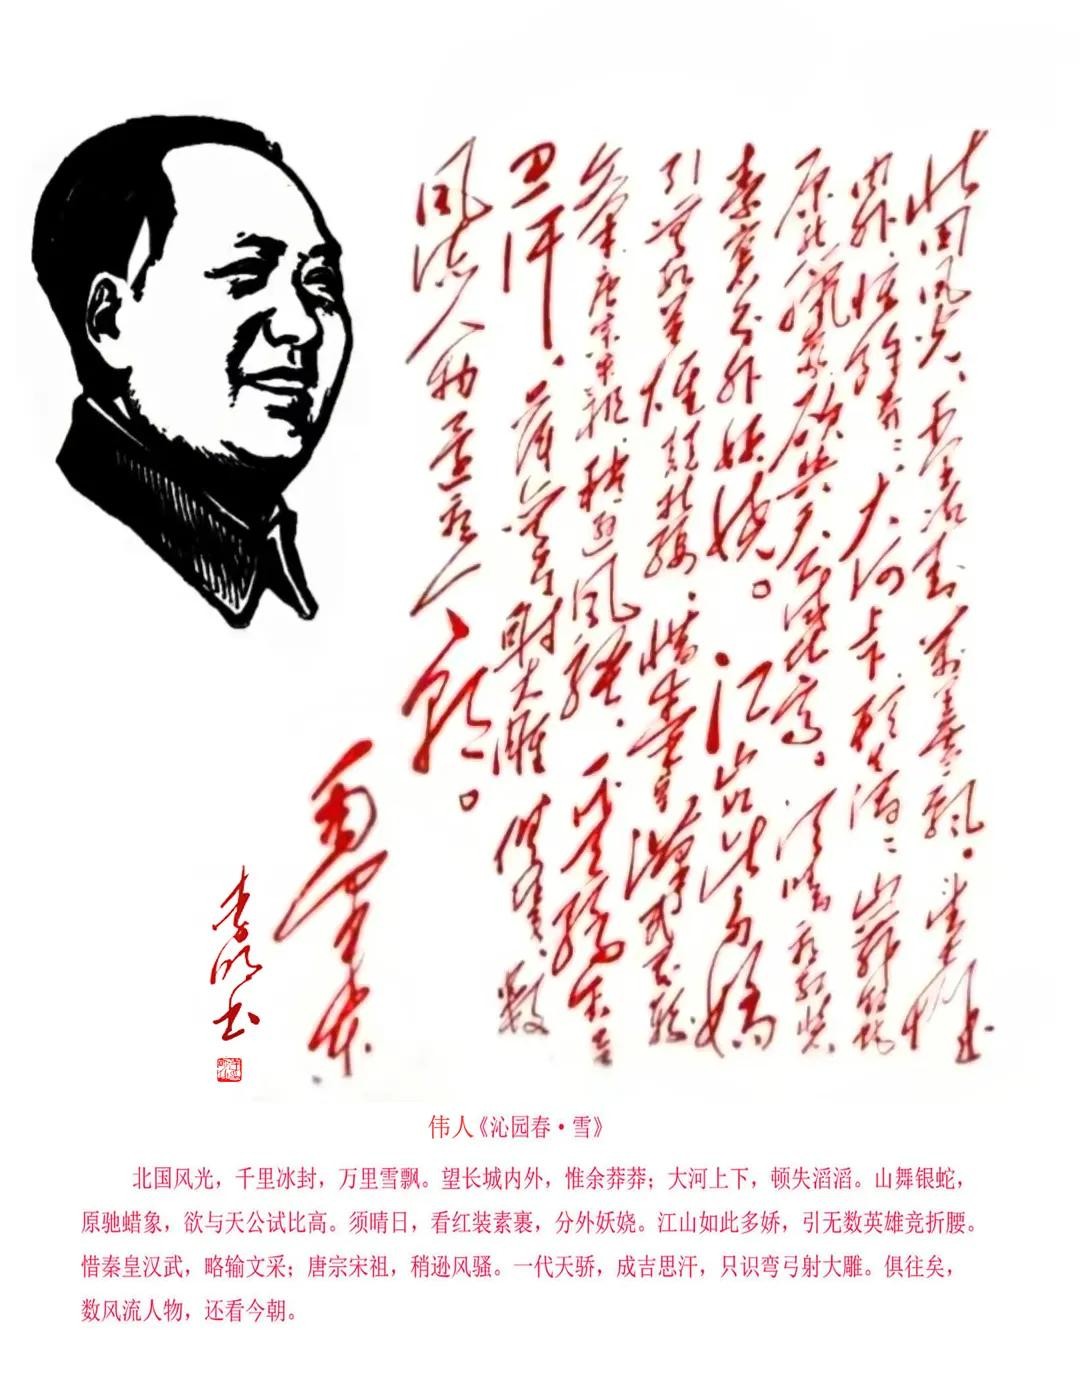 北国风光、千里冰封、萬里雪飘。望长城
内外、惟馀莽〻、大河上下、顿失滔〻、山舞银蛇
原驰蜡象、欲与天公试比高。须晴日看红装
素裹、分外妖娆。江山如此多娇
引无数英雄竞折腰、惜秦皇汉武略输
文采、唐宗宋祖、稍逊风骚、一代天骄成吉
思汗、只识弯弓射大雕、俱往矣、数
风流人物还看今朝。
毛泽东
李明书
伟人《沁园春·雪》
北国风光，千里冰封，万里雪飘。望长城内外，惟余莽莽；大河上下，顿失滔滔。山舞银蛇，
原驰蜡象，欲与天公试比高。须晴日，看红装素裹，分外妖娆。江山如此多娇，引无数英雄竞折腰。
惜秦皇汉武，略输文采；唐宗宋祖，稍逊风骚。一代天骄，成吉思汗，只识弯弓射大雕。俱往矣，
数风流人物，还看今朝。